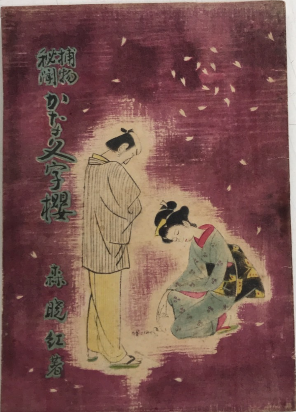 捕物
秘聞
かな文字櫻
森暁紅著